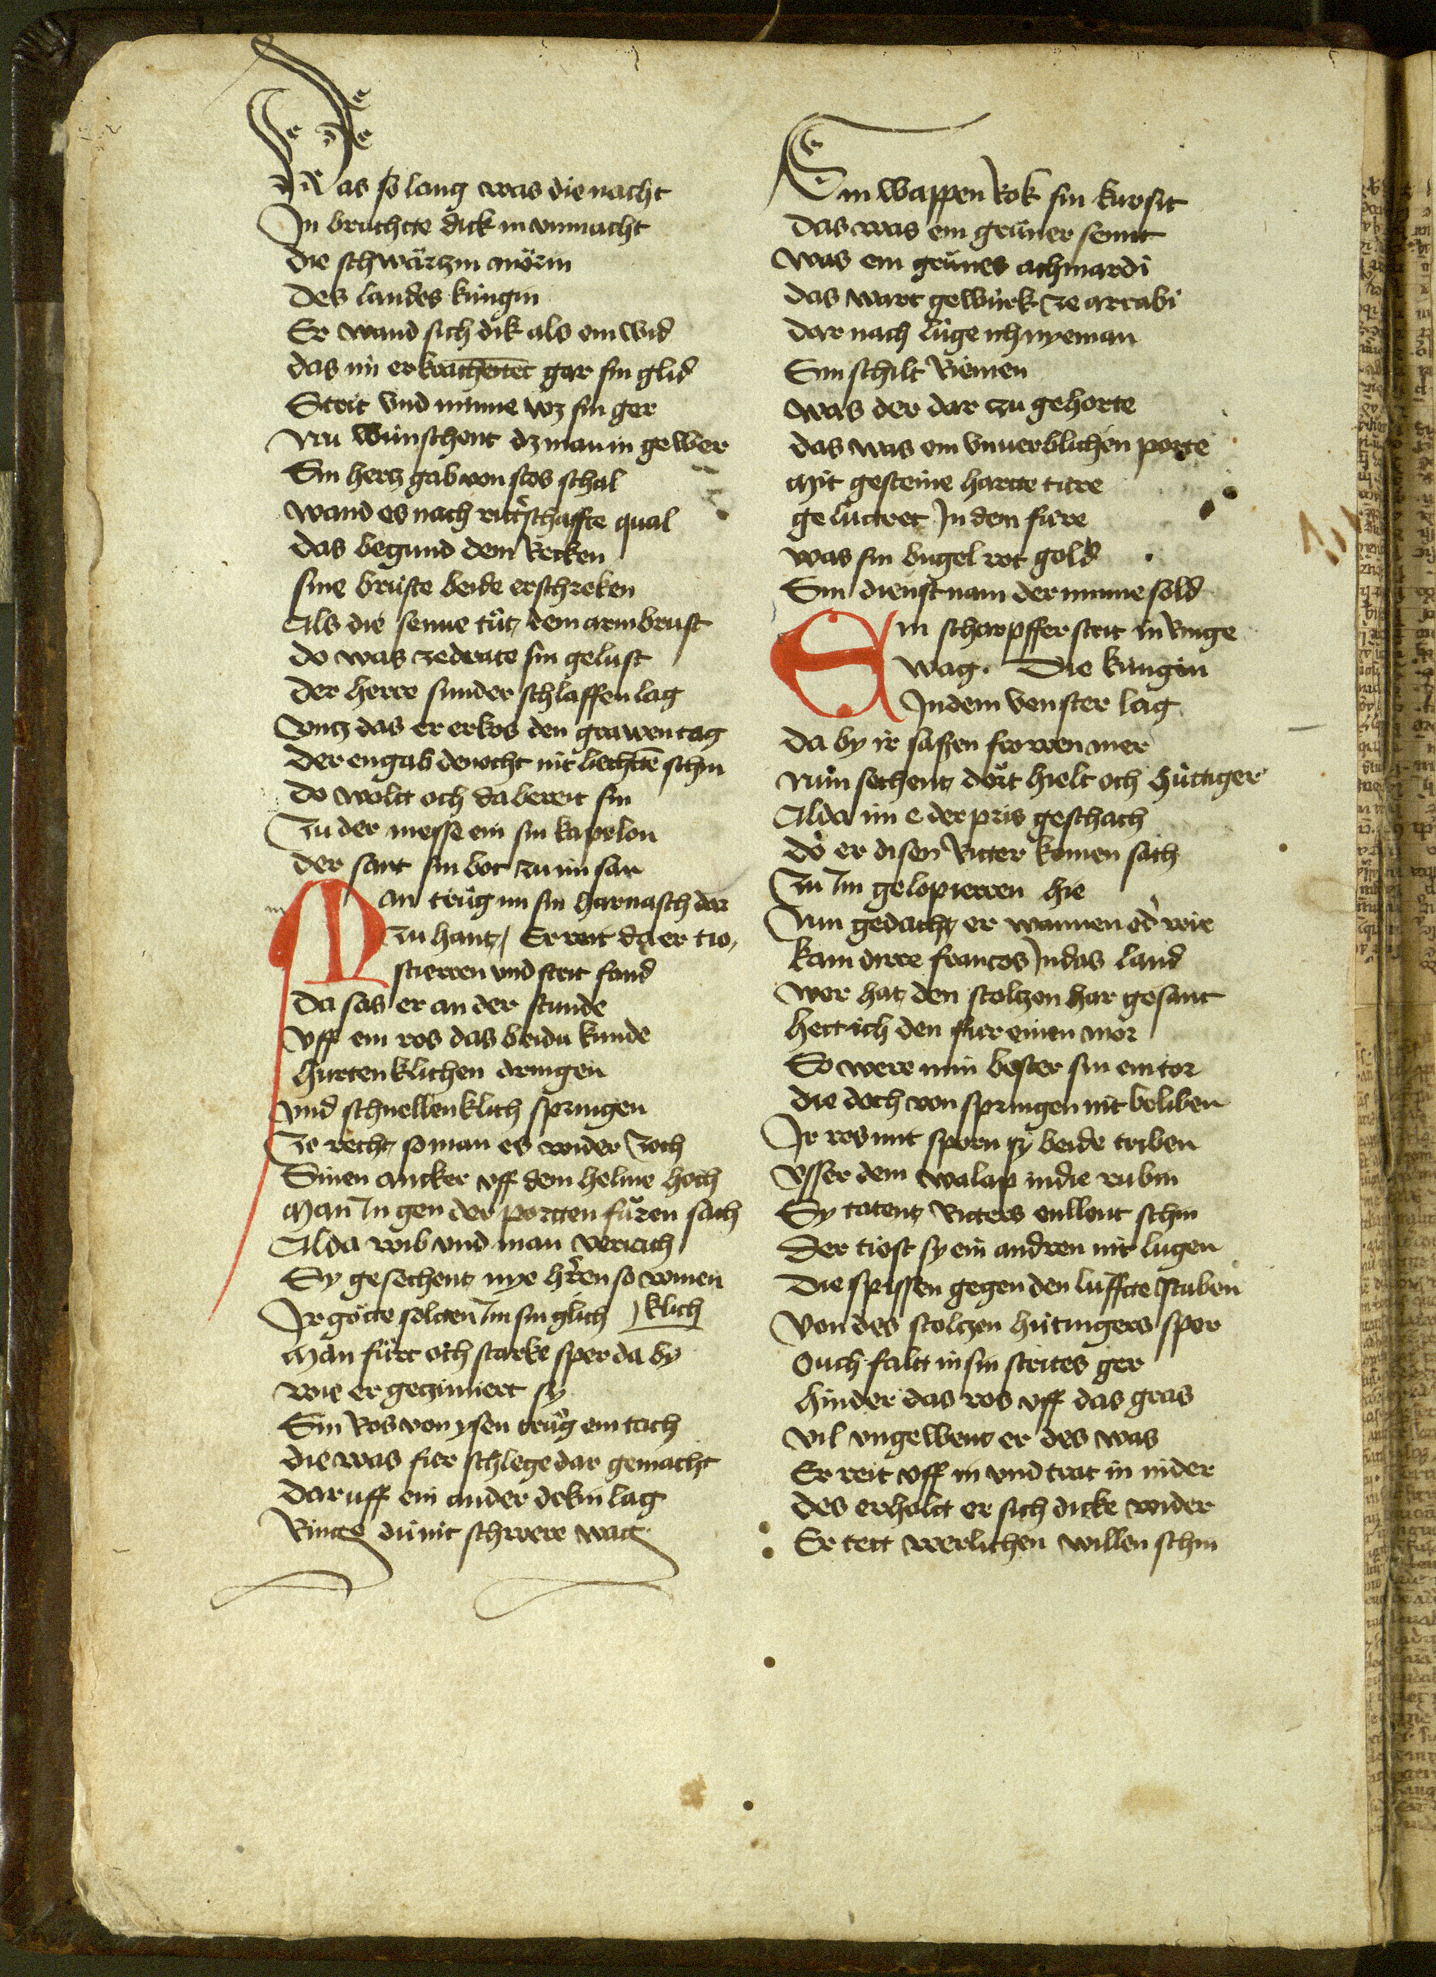 Was so lang was die nacht
In bruchtte dick in vnmacht
die schwärtzin mörin
Des landes kúngin
Er wand sich dik als ein wid
das im erkrachentent gar sin glid
Strit vnd minne wz sin ger
Nu wúnschent dz man in gewer
Sin hertz gab von stos schal
wand es nach rittˢschaffte qual
das begund dem Recken
sine brúste beide erschreken
Als die senne tůt dem armbrust
do was ze drate sin gelust
der herre sunder schlaffen lag
vntz das er erkos den grawen tag
der en gab denocht nit liechtē schin
do wolt och da bereit sin
Zu der messe ein sin kapelon
der sant sin bot zu im sar
Man trůg im sin harnasch dar
Zu hant / Er reit da er tio,
stierren vnd strit fand
Da sas er an der stunde
vff ein ros das beidu kunde
hurtenklichen dringen
vnd schnellenklich springen
Ze recht so man es wider Zoch
Sinen ancker vff dem helme hoch
Man In gen der porten fůren sach
Alda wib vnd man veriach
Sy gesechent nye hˢren so wunen
Ir götte soltten Im sin glich ) klich
Man fůrt och starke sper da by
wie er gezimiert sy
Sin Ros von ysen trůg ein tach
die was fúr schlege dar gemacht
Dar uff ein ander dekin lag
Ringe du nit schwere wag
Sin wappen Rok sin kursit
das was ein grůner semit
was ein grúnes achmardi
das wart gewúrk ze arrabi
dar nach lúge ich nyeman
Sin schilt Riemen
was der dar zu gehorte
das was ein vnuerblichen porte
mit gesteine hartte túre
gelúttret In dem fúre
was sin bugel rot gold
Sin dienst nam der minne sold
Ein scharpffer strit in ringe
wag. Die kúngin
In dem venster lag
da by ir saßen frowen mer
Nun sechent dört hielt och húttiger
Alda im e der pris geschach
do er disen Ritter komen sach
Zu Im gelopieren hie
Nun gedacht er wannen odˢ wie
kam dirre francos In das land
wer hat den stoltzen har gesant
hett ich den fúr einen mor
So were min bester sin ein tor
die doch von springen nit beliben
Ir ros mit sporn sy beide triben
vsser dem walap in die rabin
Sy tatent Ritters ellent schin
der tiost sy ein andren nit lugen
Die spissen gegen den lúffte stuben
Von des stoltzen hútingers sper
Ouch falt in sin strites ger
hinder das ros vff das gras
vil vngewent er des was
Er reit vff in vnd trat in nider
des erholt er sich dicke wider
Er tett werlichen willen schin